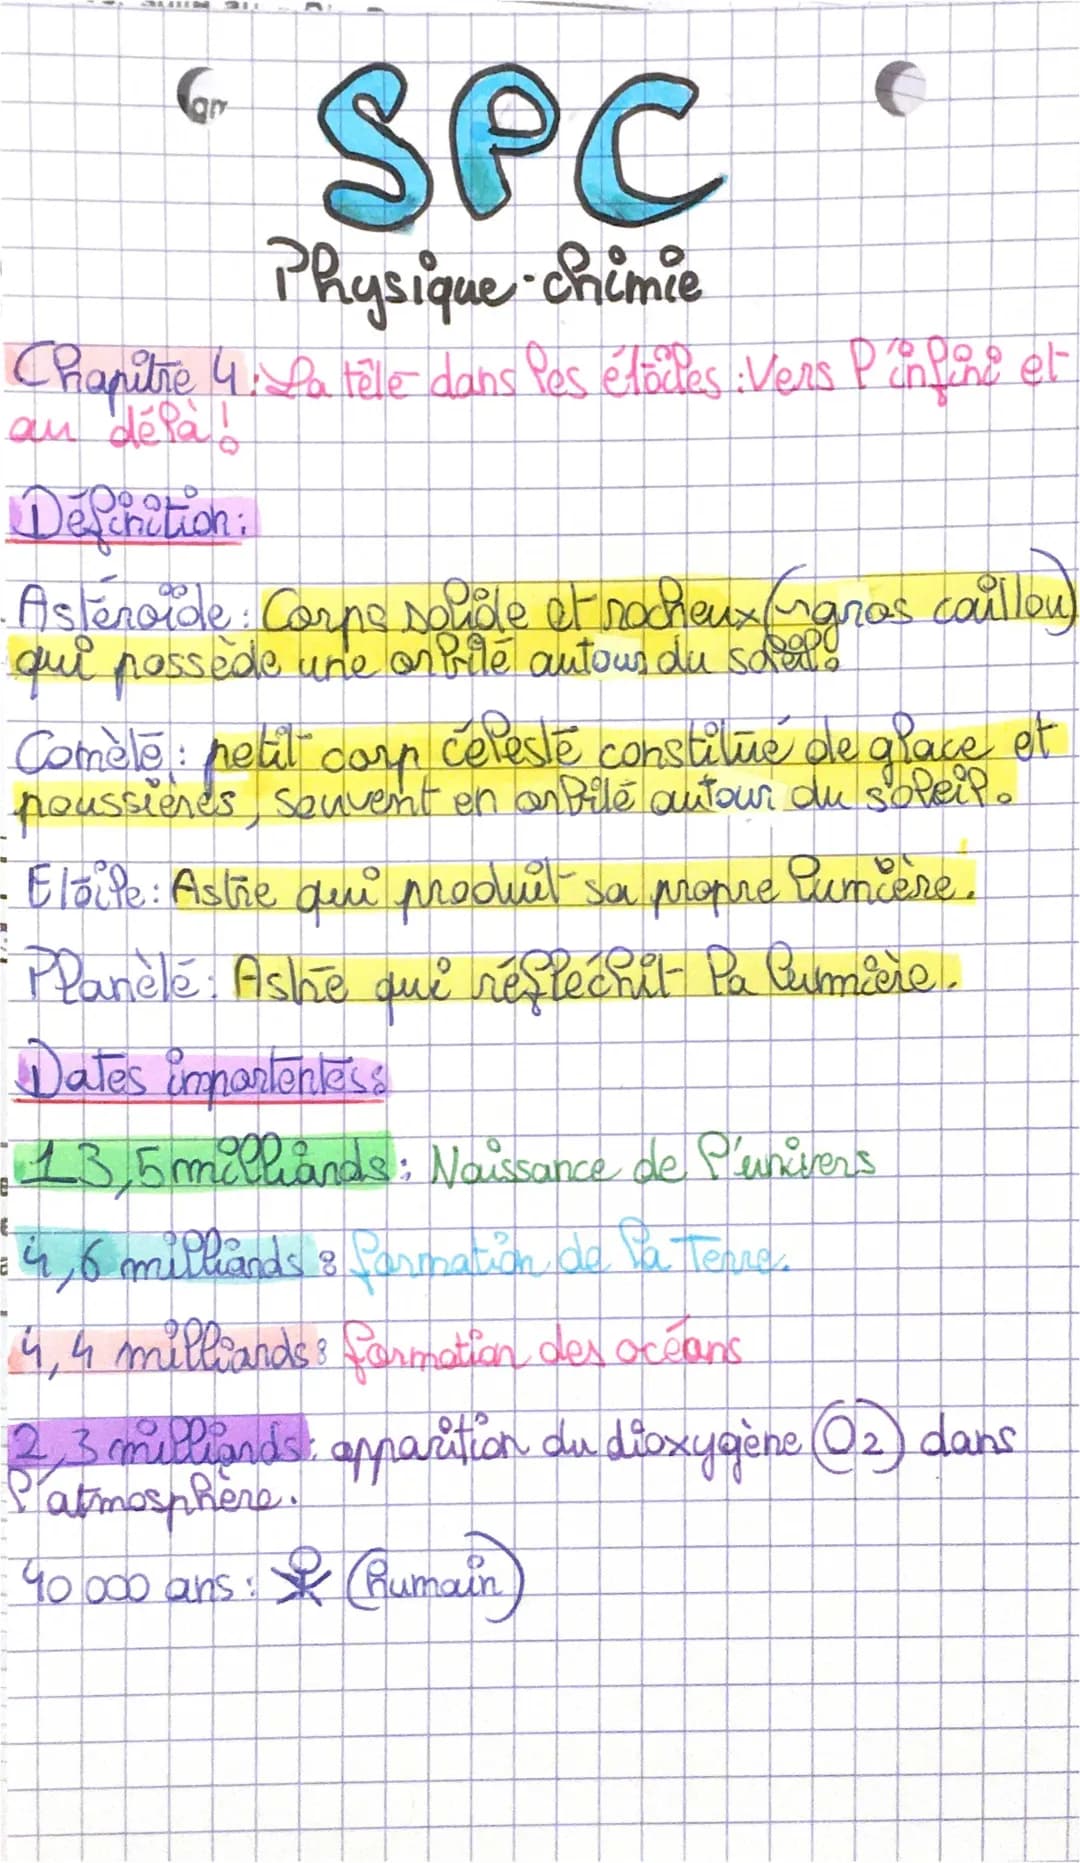 SPC
Physique-chimie
Chapitre 4: La tête dans les étoiles : Vers l'infini et
au délà!
Définition:
Astéroïde: Corps solide et rocheux (gros caillou)
qui possède une orbite autour du soleil.
Comète: petit corp céleste constitué de glace et
poussières, souvent en orbite autour du soleil.
Etoile: Astre qui produit sa propre lumière.
Planète: Astre qui réfléchit la lumière.
Dates importentes:
13,5 milliards: Naissance de l'univers
4,6 milliards: formation de la Terre.
4,4 milliards: formation des océans
2,3 milliards: apparition du dioxygène (O2) dans
l'atmosphère.
40 000 ans: (humain)